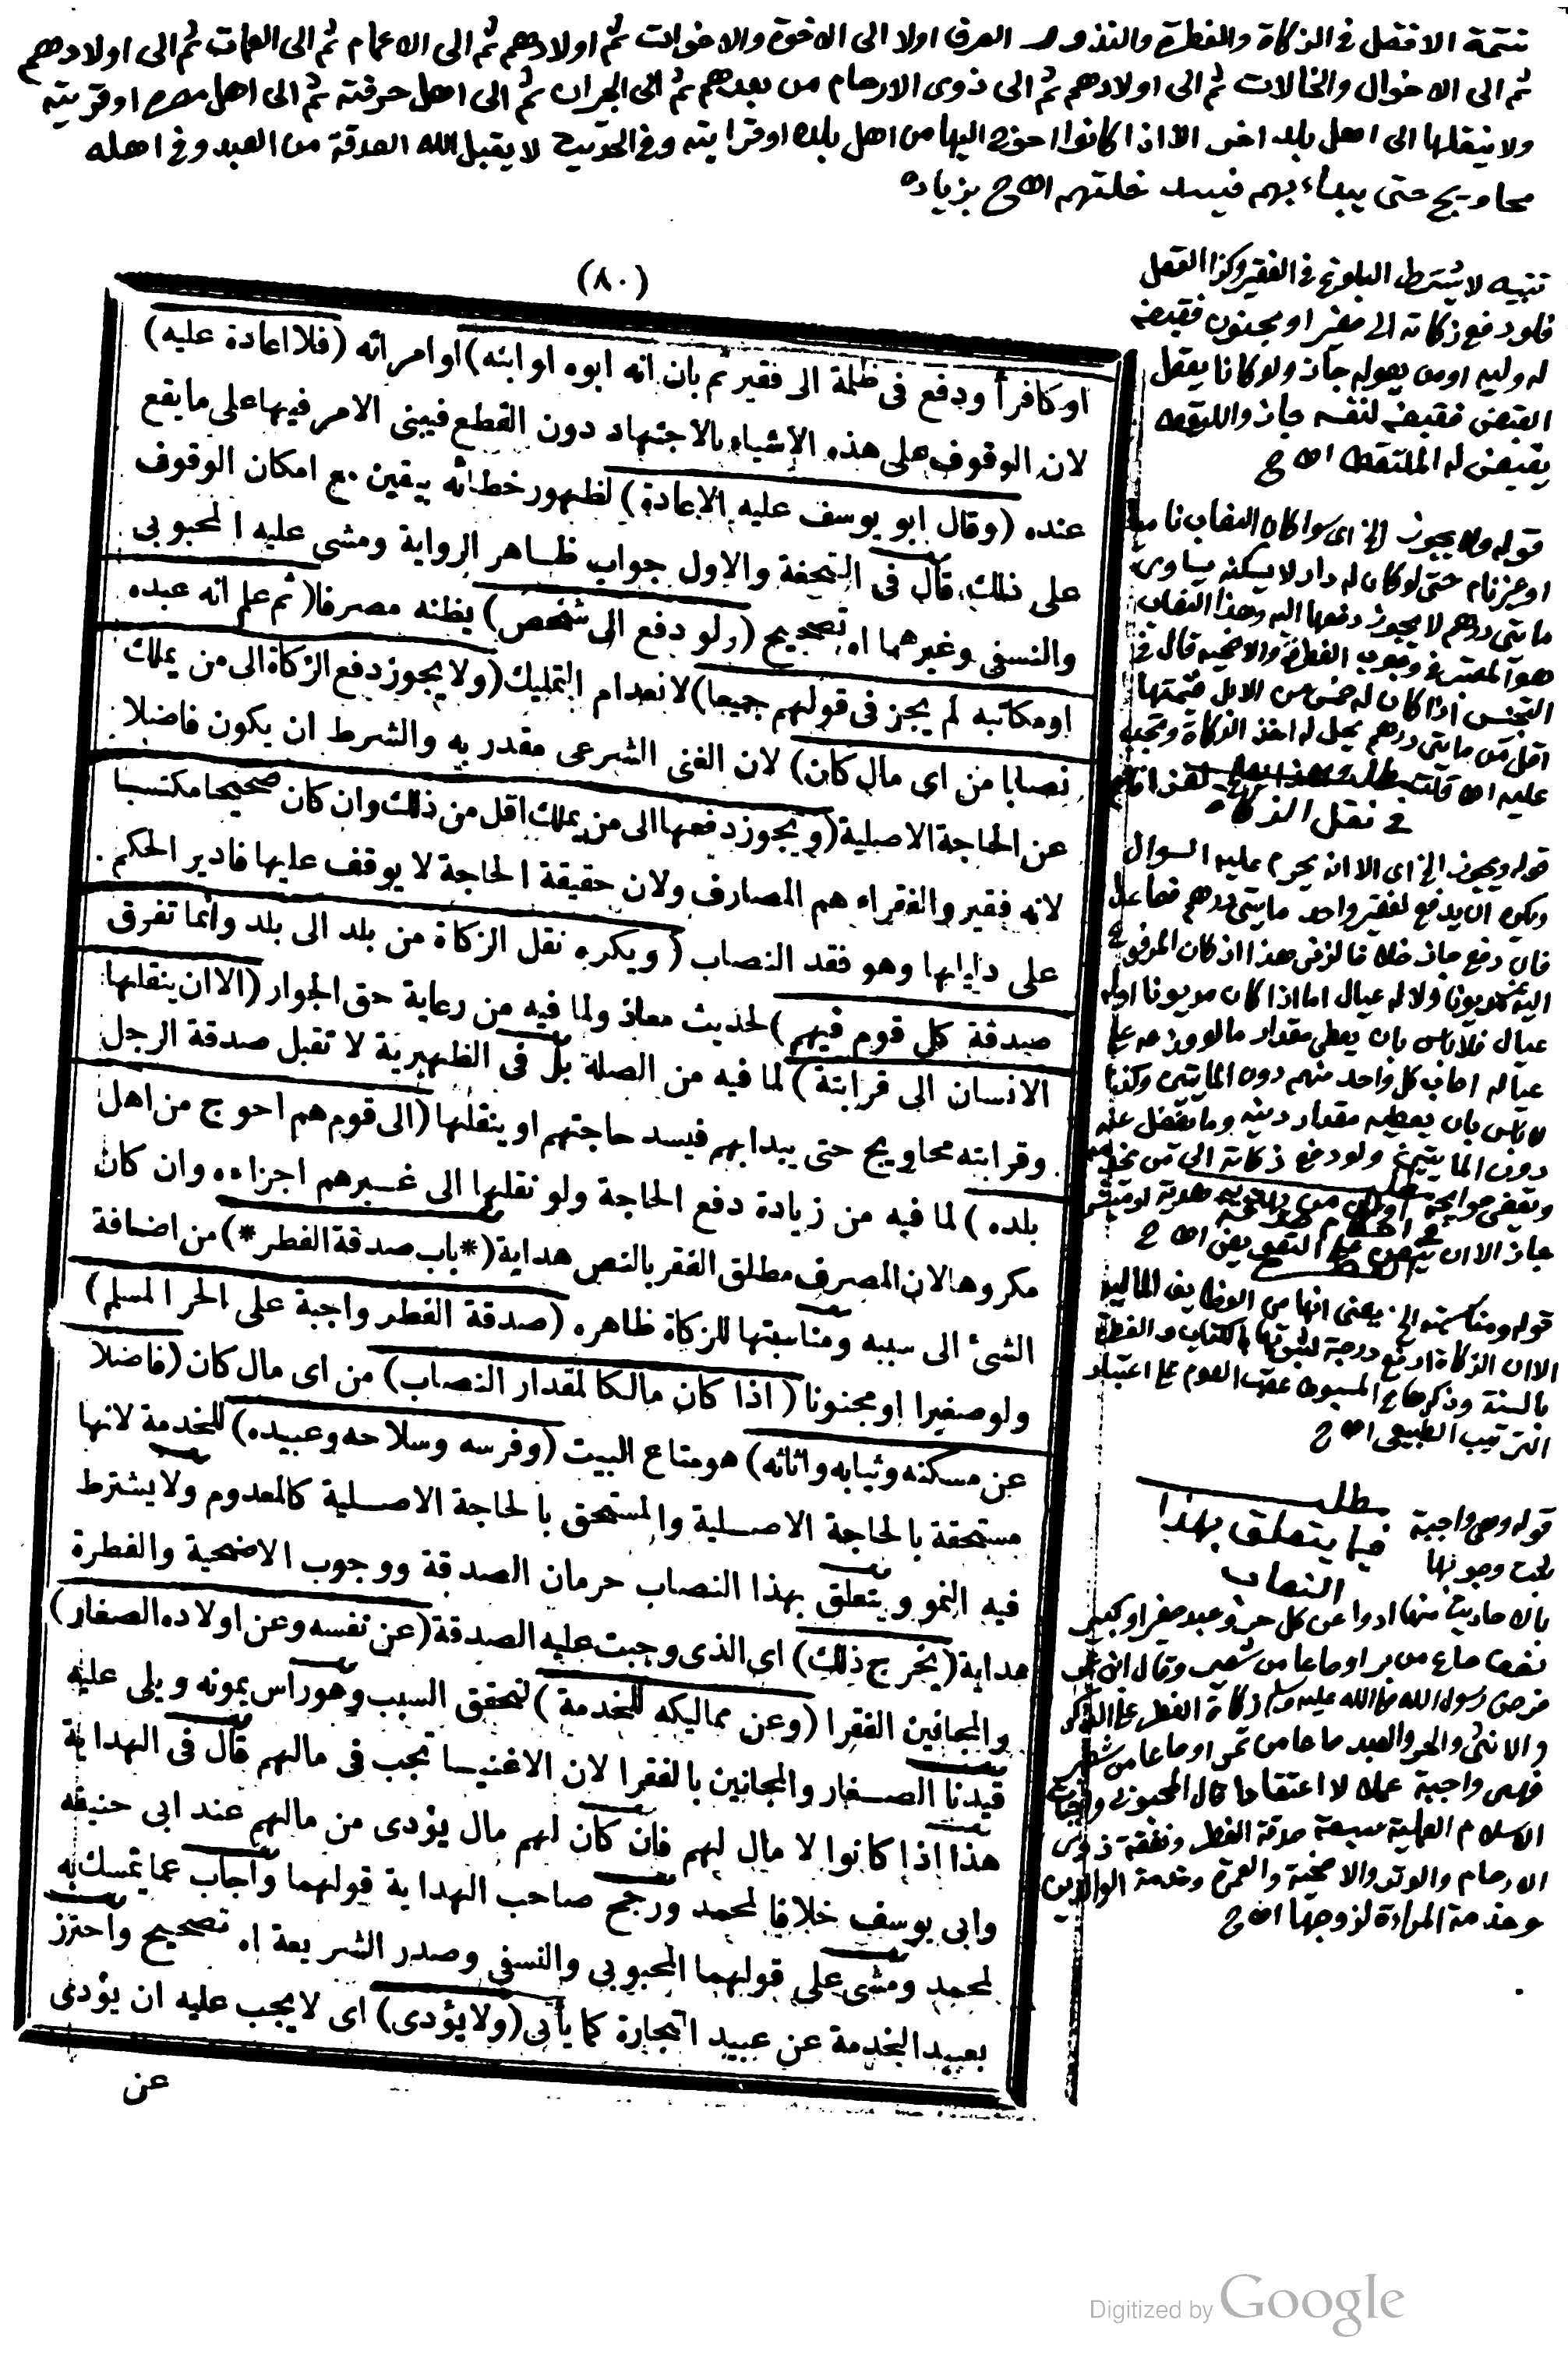 تتمة الافضل فى الزكاة والفطرة والنذور الصرف اولا الى الاخوة والاخوات ثم اولادهم ثم الى الاعمام ثم الى العمات ثم الى اولادهم
ثم الى الاخوال والخالات ثم الى اولادهم ثم الى ذوى الارحام من بعدهم ثم الى الجيران ثم الى اهل حرفته ثم الى اهل مصره او قريته
ولا ينقلها الى اهل بلد اخر الا اذا كانوا احوج اليها من اهل بلده او قرابته وفى الحديث لا يقبل الله الصدقة من العبد وفى اهله
محاويج حتى يبداء بهم فيسد خلتهم اه ج بزياده
(٨٠)
اوكافرأ ودفع فى ظلمة الى فقير ثم بان انه ابوه او ابنه) او امرأته (فلا اعادة عليه)
لان الوقوف على هذه الاشياء بالاجتهاد دون القطع فيبنى الامر فيها على ما يقع
عنده (وقال ابو يوسف عليه الاعادة) لظهور خطائه بيقين مع امكان الوقوف
على ذلك قال فى التحفة والاول جواب ظاهر الرواية ومشى عليه المحبوبى
والنسفى وغيرهما اه تصحيح (ولو دفع الى شخص) يظنه مصرفا (ثم علم انه عبده
اومكاتبه لم يجز فى قولهم جميعا) لانعدام التمليك (ولا يجوز دفع الزكاة الى من يملك
نصابا من اى مال كان) لان الغنى الشرعى مقدر به والشرط ان يكون فاضلا
عن الحاجة الاصلية (ويجوز دفعها الى من يملك اقل من ذلك وان كان صحيحا مكتسبا
لانه فقير والفقراء هم المصارف ولان حقيقة الحاجة لا يوقف عليها فادير الحكم
على دليلها وهو فقد النصاب (ويكره نقل الزكاة من بلد الى بلد وانما تفرق
صدقة كل قوم فيهم) لحديث معاذ ولما فيه من رعاية حق الجوار (الا ان ينقلها
الانسان الى قرابتة) لما فيه من الصلة بل فى الظهيرية لا تقبل صدقة الرجل
وقرابته محاويج حتى يبدا بهم فيسد حاجتهم او ينقلها (الى قوم هم احوج من اهل
بلده) لما فيه من زيادة دفع الحاجة ولو نقلها الى غيرهم اجزاءه وان كان
مكروها لان المصرف مطلق الفقر بالنص هداية (*باب صدقة الفطر*) من اضافة
الشئ الى سببه ومناسبتها للزكاة ظاهره (صدقة الفطر واجبة على الحر المسلم)
ولو صغيرا او مجنونا (اذا كان مالكا لمقدار النصاب) من اى مال كان (فاضلا
عن مسكنه وثيابه واثاثه) هو متاع البيت (وفرسه وسلاحه وعبيده) للخدمة لانها
مستحقة بالحاجة الاصلية والمستحق بالحاجة الاصلية كالمعدوم ولا يشترط
فيه النمو ويتعلق بهذا النصاب حرمان الصدقة ووجوب الاضحية والفطرة
هداية (يخرج ذلك) اى الذى وجبت عليه الصدقة (عن نفسه وعن اولاده الصغار)
والمجانين الفقرا (وعن مماليكه للخدمة) لتحقق السبب وهو رأس يمونه ويلى عليه
قيدنا الصغار والمجانين بالفقرا لان الاغنيا تجب فى مالهم قال فى الهداية
هذا اذا كانوا لا مال لهم فان كان لهم مال يؤدى من مالهم عند ابى حنيفة
وابى يوسف خلافا لمحمد ورجح صاحب الهداية قولهما واجاب عما تمسك به
لمحمد ومشى على قولهما المحبوبى والنسفى وصدر الشريعة اه تصحيح واحترز
بعبيد الخدمة عن عبيد التجارة كما يأتى (ولا يؤدى) اى لا يجب عليه ان يؤدى
عن
تنبيه لا يشترط البلوغ فى الفقير وكذا العقل
فلو دفع زكاته الى صغير او مجنون فقبضه
له وليه او من يعوله جاز ولو كانا يعقل
القبض فقبضه لنفسه جاز واللقيط
يقبض له الملتقط اه ج
قوله ولا يجوز الخ اى سوا كان النصاب ناميا
او غير نام حتى لو كان له دار لا يسكنه يساوى
مايتى درهم لا يجوز دفعها اليه وهذا النصاب
هو المعتبر فى وجوب الفطرة والاضحيه قال فى
التجنس اذا كان له خمس من الابل قيمتها
اقل من مايتى درهم يحل له اخذ الزكاة وتجب
عليه اه قلت
فى نقل الزكاة
قوله ويجوز الخ اى الا انه يحرم عليه السوال
ويكره ان يدفع لفقير واحد مايتى درهم فصاعدا
فان دفع جاز خلافا لزفر هذا اذا كان المدفوع
اليه غير مديونا ولا له عيال اما اذا كان مديونا او له
عيال فلا باس بان يعطى مقدار ما لو وزعه على
عياله اصاب كل واحد منهم دون المايتين وكذا
لا باس بان يعطيه مقدار دينه وما يفضل عنه
دون المايتين ولو دفع زكاته الى من يخدمه
ويقضى حوايجه
جاز الا ان ينص على التعويض اه ج
قوله ومناسبته الخ يعنى انها من الوظايف المالية
الا ان الزكاة ارفع درجة لثبوتها بالكتاب والفطرة
بالسنة وذكرها فى المبسوط عقب الصوم على اعتبار
الترتيب الطبيعى اه ج
مطلب
فيما يتعلق بهذا
النصاب
قوله وهى واجبة
ثبت وجوبها
بالاحاديث منها ادوا عن كل حر وعبد صغير او كبير
نصف صاع من بر او صاعا من شعير وقال ابن عمر
فرض رسول الله صلى الله عليه وسلم زكاة الفطر على الذكر
والانثى والحر والعبد صاعا من تمر او صاعا من شعير
فهى واجبة عملا لا اعتقادا قال المحبوبى واجبات
الاسلام العملية سبعة صدقة الفطر ونفقة ذوى
الارحام والوتر والاضحية والعمرة وخدمة الوالدين
وخدمة المرادة لزوجها اه ج
Digitized by Google